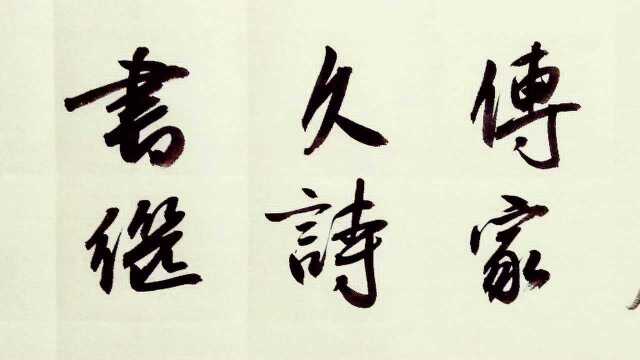 傳家
久詩
書繼